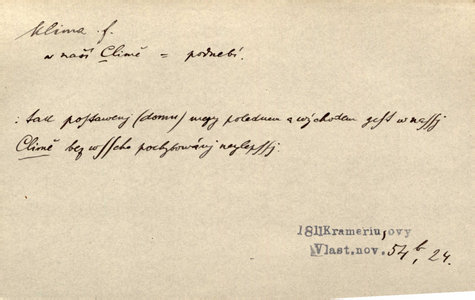 klima f.
w naší Climě = podnebí.
: tak postawenj (domu) mezy polednem a východem gest w nassj
Climě bez wsseho pochybowánj neylepssj.
1811 Krameriusovy
Vlast. nov. 54b, 24.